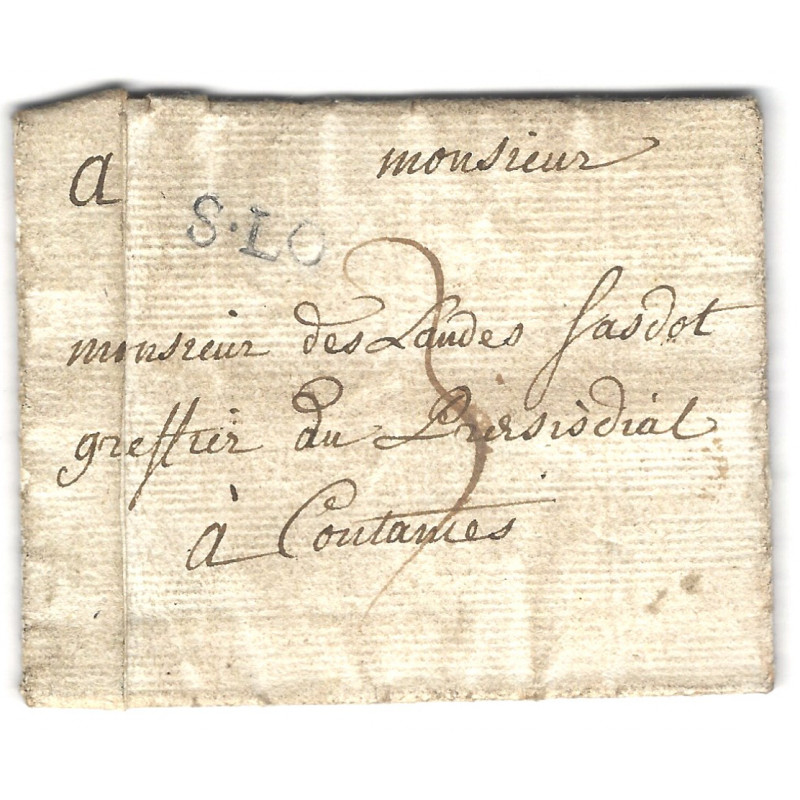 a monsieur
S·LO
3
monsieur des Landes Gasdot
greffier au Prersisdial
à Coutances